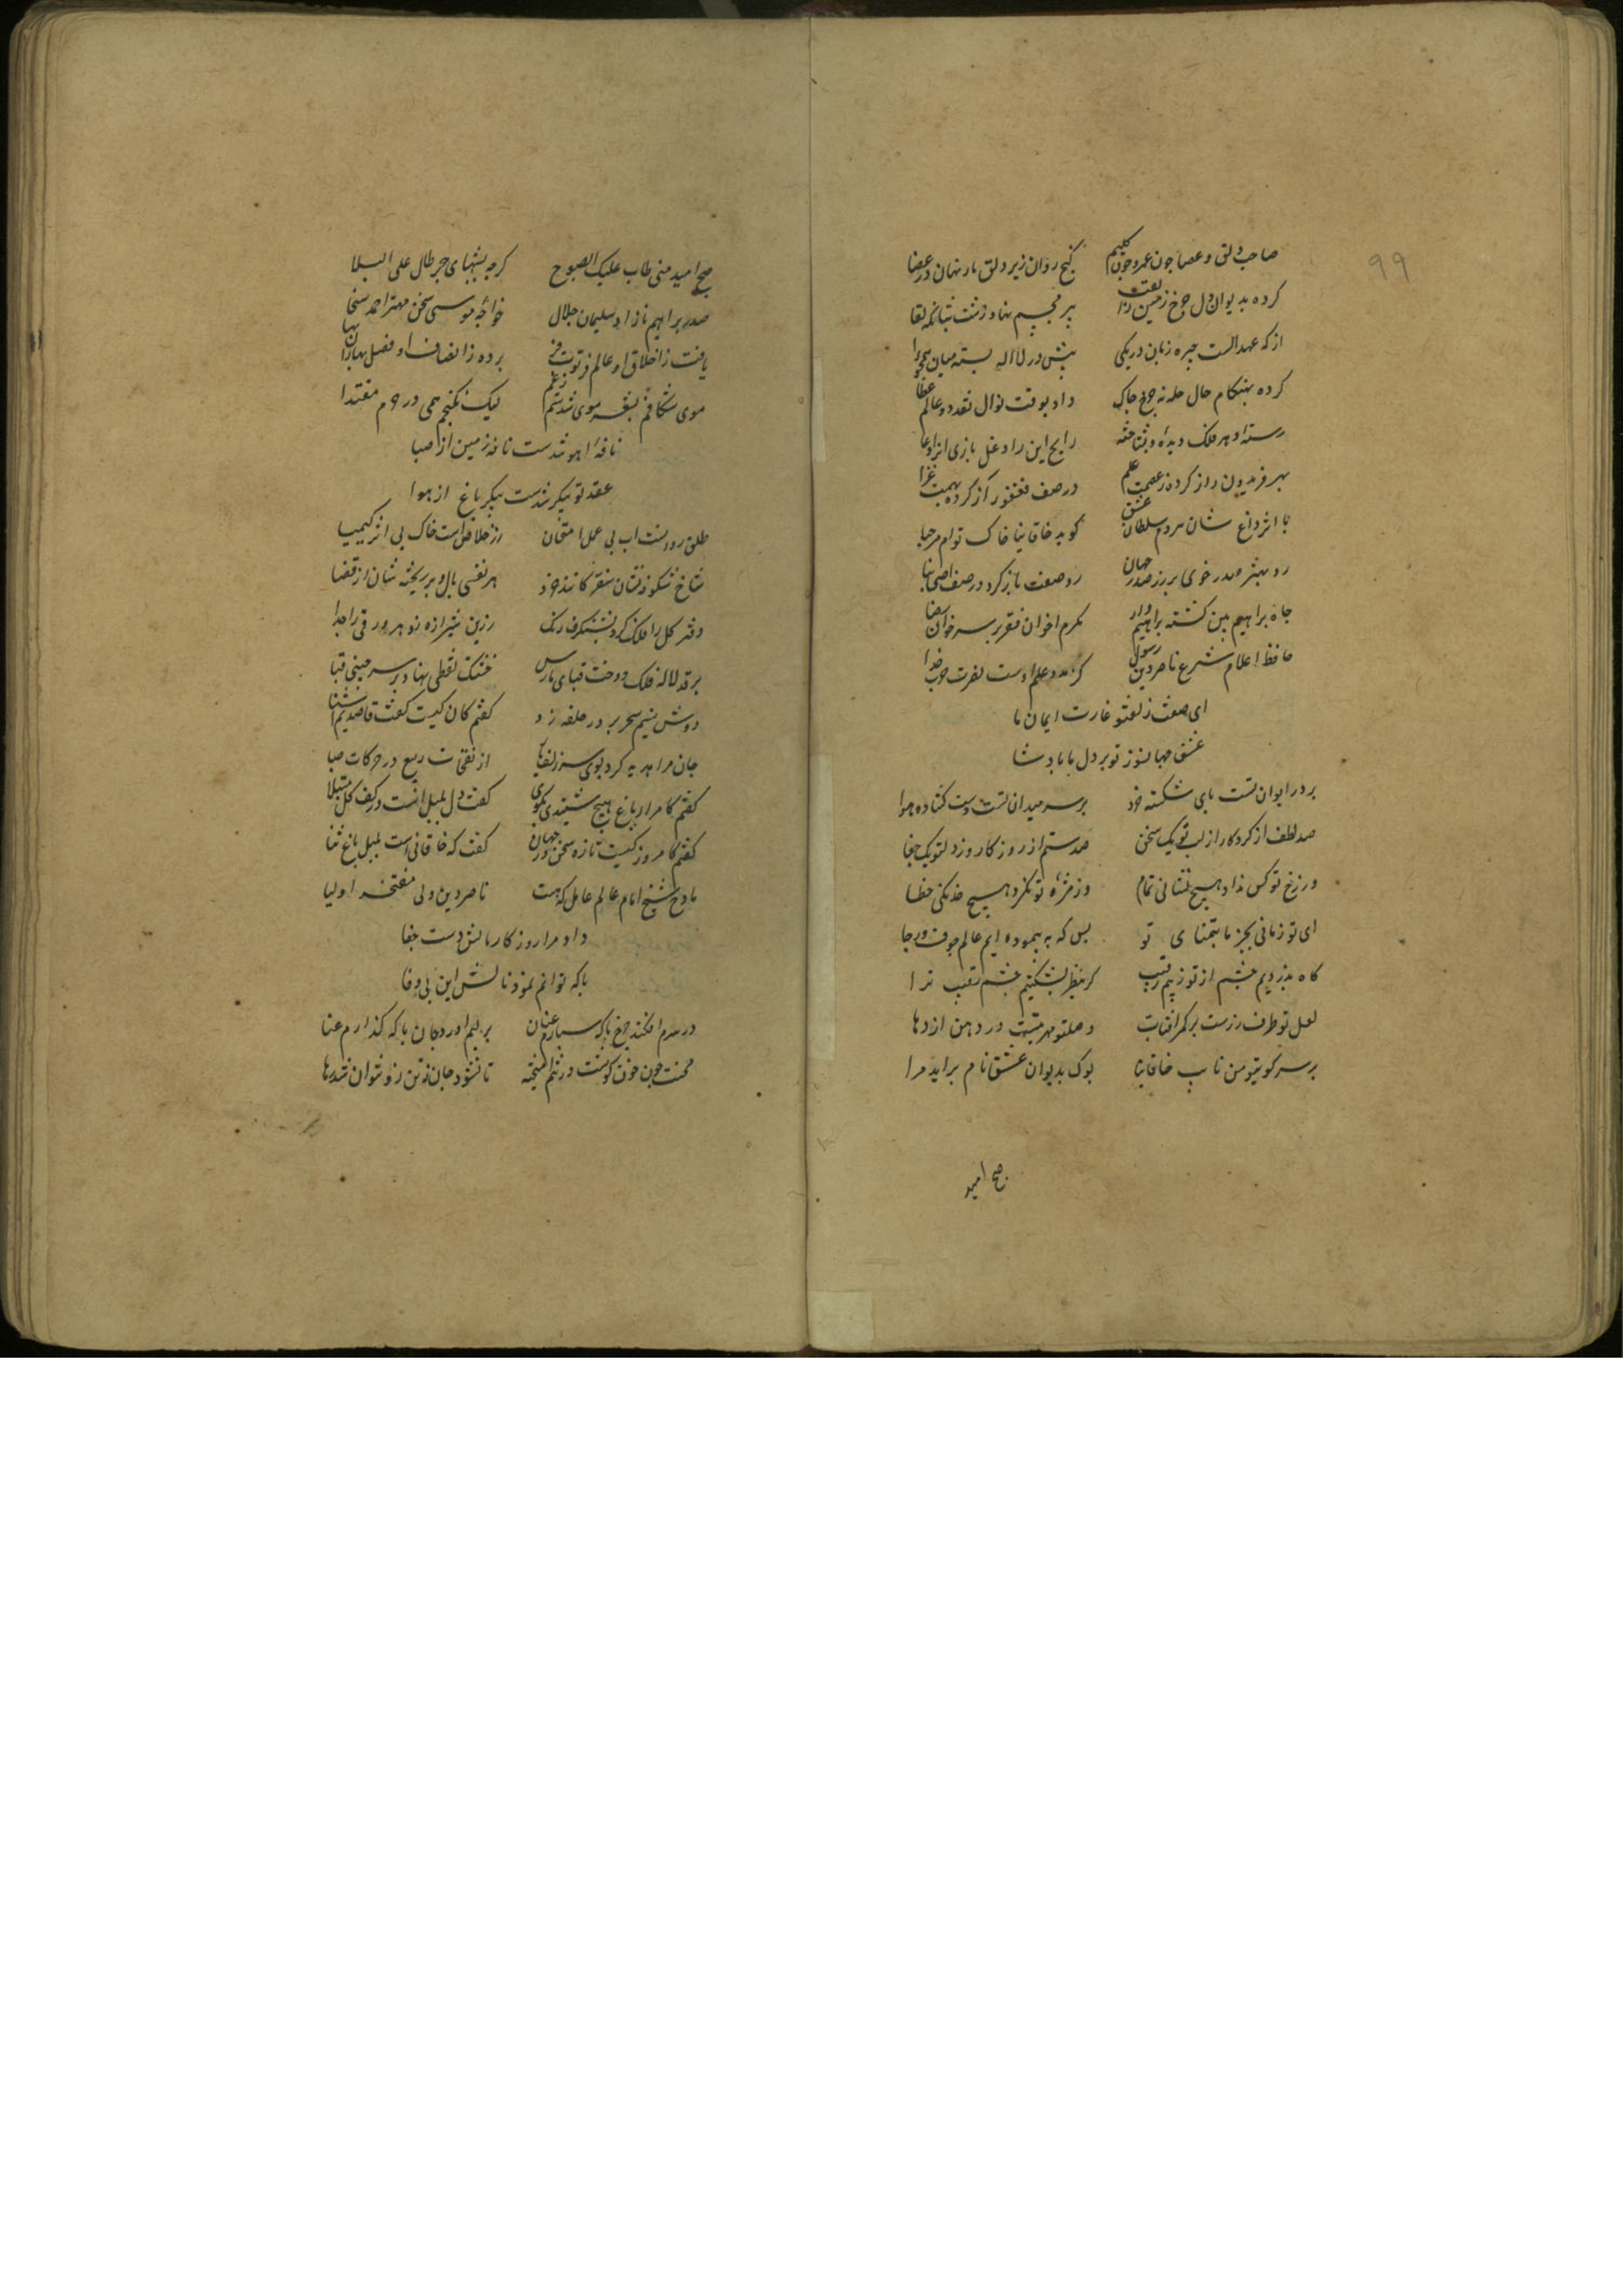 ۹۹
صاحب دلق و عصا چون عمر و چون کلیم    گنج روان زیر دلق مار نهان در عصا
کرده بدیوان دل چرخ زمین را لقب    پیر مجسم نهاد زشت شبانکه لقا
از که عهد الست چیره زبان در بکی    پیش در لااله بسته میان همچو لا
کرده بهنکام حال حله نه چرخ چاک    داد بوقت نوال نقد دو عالم عطا
رسته او هر فلک دیده و بشناخته    رایج این را دغل بازی انرا دعا
بهر فریدون راز کرده ز عصمت علم    در صف فغفور از کرده بهمت غزا
با اثر داغ شان مردم سلطان عشق    کوید خاقانیا خاک توام مرحبا
رو بهنر صدر جوی بر در صدر جهان    رو صفت باز کرد در صف اصحابنا
جاه براهیم بین کشته براهیم وار    مکرم اخوان فقر بر سر خوان رضا
حافظ اعلام شرع ناصر دین رسول    کز مدد علم اوست نصرت حزب خدا
ای صفت زلف تو غارت ایمان ما
عشق جهانسوز تو بر دل ما پادشا
بر در ایوان تست پای شکسته خرد    بر سر میدان تست دست کشاده هوا
صد لطف از کردکار از لب تو یک سخن    صد ستم از روزکار وز دل تو یک جفا
ورزخ تو کس نداد هیچ نشانی تمام    وز مژه تو نکرد هیچ خدنکی خطا
ای تو زمانی بجز ما بتمنای تو    بس که به پیموده ایم عالم خوف و رجا
کاه بدزدیم چشم از تو ز بیم رقیب    کر بنظر بشکنیم چشم رقیب ترا
لعل تو طرف زرست بر کمر افتاب    وصل تو مهر تبست در دهن اژدها
بر سر کوی تو من نایب خاقانیا    بوک بدیوان عشق نام براید مرا
صبح امید
صبح امید منی طاب علیک الصبوح    کرچه بشبهای هجر طال علی البلا
صدر براهیم نام راد سلیمان جلال    خواجه موسی سخن مهتر احمد سخا
یافت ز اخلاق او عالم فرتوت فر    برده ز انصاف او فصل بهاران بها
موی شکافم بشعر موی شدستم ز غم    لیک نکنجم همی در حرم مقتدا
نافه اهو شدست نافه زمین از صبا
عقد دو پیکر شدست پیکر باغ از هوا
طلق روانست اب بی عمل امتحان    زر خلاصست خاک بی اثر کیمیا
شاخ شکوفه فشان سنقر کانند خرد    هر نفسی بال و پر ریخته شان از قضا
دفتر کل را فلک کرد بشنکرف رنک    زرین شیرازه زد هر ورقی را جدا
بر قد لاله فلک دوخت قبای پارس    خشتک نفطی نهاد بر سر چینی قبا
دوش نسیم سحر بر در من حلقه زد    کفتم کان کیست کفت قاصدیم آشنا
جان مرا هدیه کرد بوی سر زلفها    از نفحات ربیع در حرکات صبا
کفتم کامرا باغ هیچ شنیدی بکوی    کفت دل بلبل است در کف کل مبتلا
کفتم کامروز کیست تازه سخن در جهان    کفت که خاقانی است بلبل باغ ثنا
مادح شیخ امام عالم عامل که هست    ناصر دین ولی مفتخر اولیا
داد مرا روزکار مالش دست جفا
با که توانم نمود نالش این بی وفا
در سرم افکند چرخ با که سپارم عنان    بر لبم اورد جان با که کذارم عنا
محنت چون خون کوشت در تنم امیخته    تا نشود جان ز تن زو نتوان شد رها